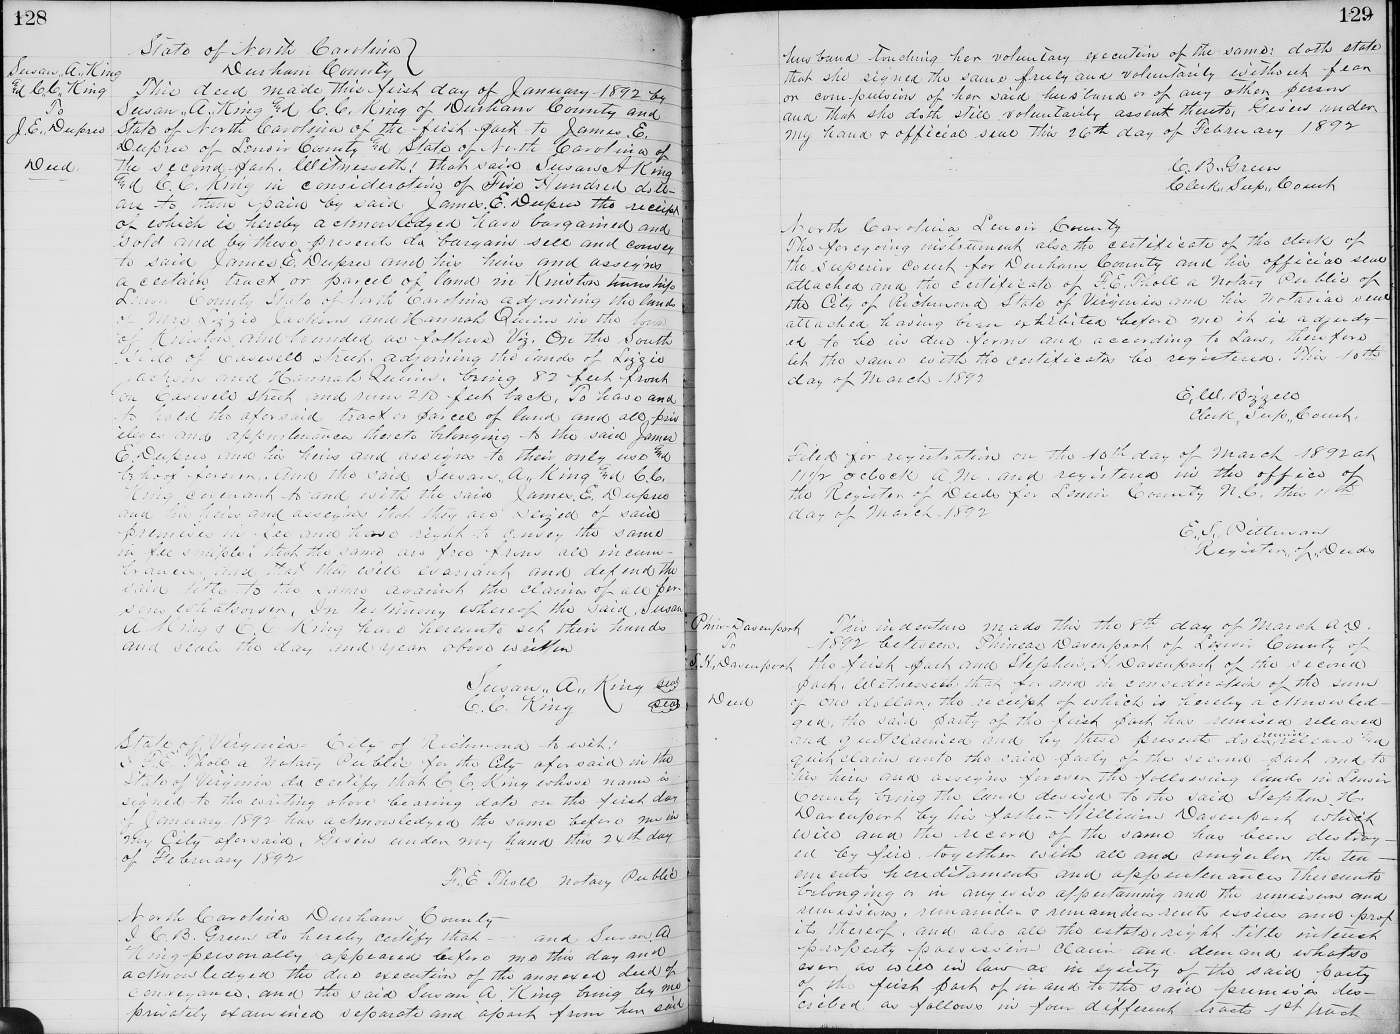 128
State of North Carolina
Durham County
Susan A. King
& C. C. King
To
J. E. Dupree
Deed
This deed made this first day of January 1892 by
Susan A. King & C. C. King of Durham County and
State of North Carolina of the first part to James E.
Dupree of Lenoir County & State of North Carolina of
the second part. Witnesseth! that said Susan A King
& C. C. King in consideration of Five Hundred doll-
ars to them paid by said James E. Dupree the receipt
of which is hereby acknowledged have bargained and
sold and by these presents do bargain sell and convey
to said James E. Dupree and his heirs and assigns
a certain tract or parcel of land in Kinston township
Lenoir County State of North Carolina adjoining the lands
of Mrs Lizzie Jackson and Hannah Quinn in the town
of Kinston and bounded as follows Viz. On the South
side of Caswell street. adjoining the lands of Lizzie
Jackson and Hannah Quinn. being 82 feet front
on Caswell street and runs 210 feet back. To have and
to hold the aforsaid tract or parcel of land and all priv
ileges and appurtenances thereto belonging to the said James
E. Dupree and his heirs and assigns to their only use &
behoof forever. And the said Susan A. King & C. C.
King covenant to and with the said James E. Dupree
and his heirs and assigns that they are seized of said
premises in fee and have right to convey the same
in fee simple; that the same are free from all incum-
brances, and that they will warrant and defend the
said title to the same against the claims of all per-
sons whatsoever. In testimony whereof the said Susan
A King & C. C. King have hereunto set their hands
and seals the day and year above written
Susan A. King seal
C. C. King seal
State of Virginia City of Richmond to wit!
I F. E. Tholl a Notary Public for the City aforsaid in the
State of Virginia do certify that C. C. King whose name is
signed to the writing above bearing date on the first day
of January 1892 has acknowledged the same before me in
my City aforsaid. Given under my hand this 24th day
of February 1892
F. E Tholl Notary Public
North Carolina Durham County
I C. B. Green do hereby certify that - and Susan A
King personally appeared before me this day and
acknowledged the due execution of the annexed deed of
conveyance. and the said Susan A. King being by me
privately examined separate and apart from her said
129
husband touching her voluntary execution of the same: doth state
that she signed the same freely and voluntarily without fear
or compulsion of her said husband or of any other person
and that she doth still voluntarily assent thereto, Given under
my hand & official seal this 26th day of February 1892
C. B. Green
Clerk Sup. Court
North Carolina Lenoir County
The foregoing instrument also the certificate of the clerk of
the superior court for Durham County and his official seal
attached and the certificate of F. E. Tholl a Notary Public of
the City of Richmond State of Virginia and his Notarial seal
attached having been exhibited before me it is adjudg-
ed to be in due form and according to Law, therefore
let the same with the certificates be registered. This 10th
day of March 1892
E. W. Bizzell
Clerk Sup. Court.
Filed for registration on the 10th day of March 1892 at
11 1/2 oclock A. M. and registered in the office of
the Register of Deeds for Lenoir County N. C. this 11th
day of March 1892
E. S. Pittman
Register of Deeds
Phin Davenport
To
S. H. Davenport
Deed
This indenture made this the 8th day of March A. D.
1892 between. Phineas Davenport of Lenoir County of
the first part and Stephen H. Davenport of the second
part. Witnesseth that for and in consideration of the sum
of one dollar, the receipt of which is hereby acknowled-
ged, the said party of the first part has remised released
and quitclaimed and by these presents does remise release &
quitclaim unto the said party of the second part and to
his heirs and assigns forever the following lands in Lenoir
County being the land devised to the said Stephen H.
Davenport by his father William Davenport which
will and the record of the same has been destroy-
ed by fire. together with all and singular the ten-
ements hereditaments and appurtenances thereunto
belonging or in anywise appertaining and the remission and
remissions. remainder & remainders rents issues and prof
its thereof. and also all the estate, right title interest
property possession claim and demand whatso
ever as well in law as in equity of the said party
of the first part of in and to the said premises des-
cribed as follows in four different tracts 1st tract